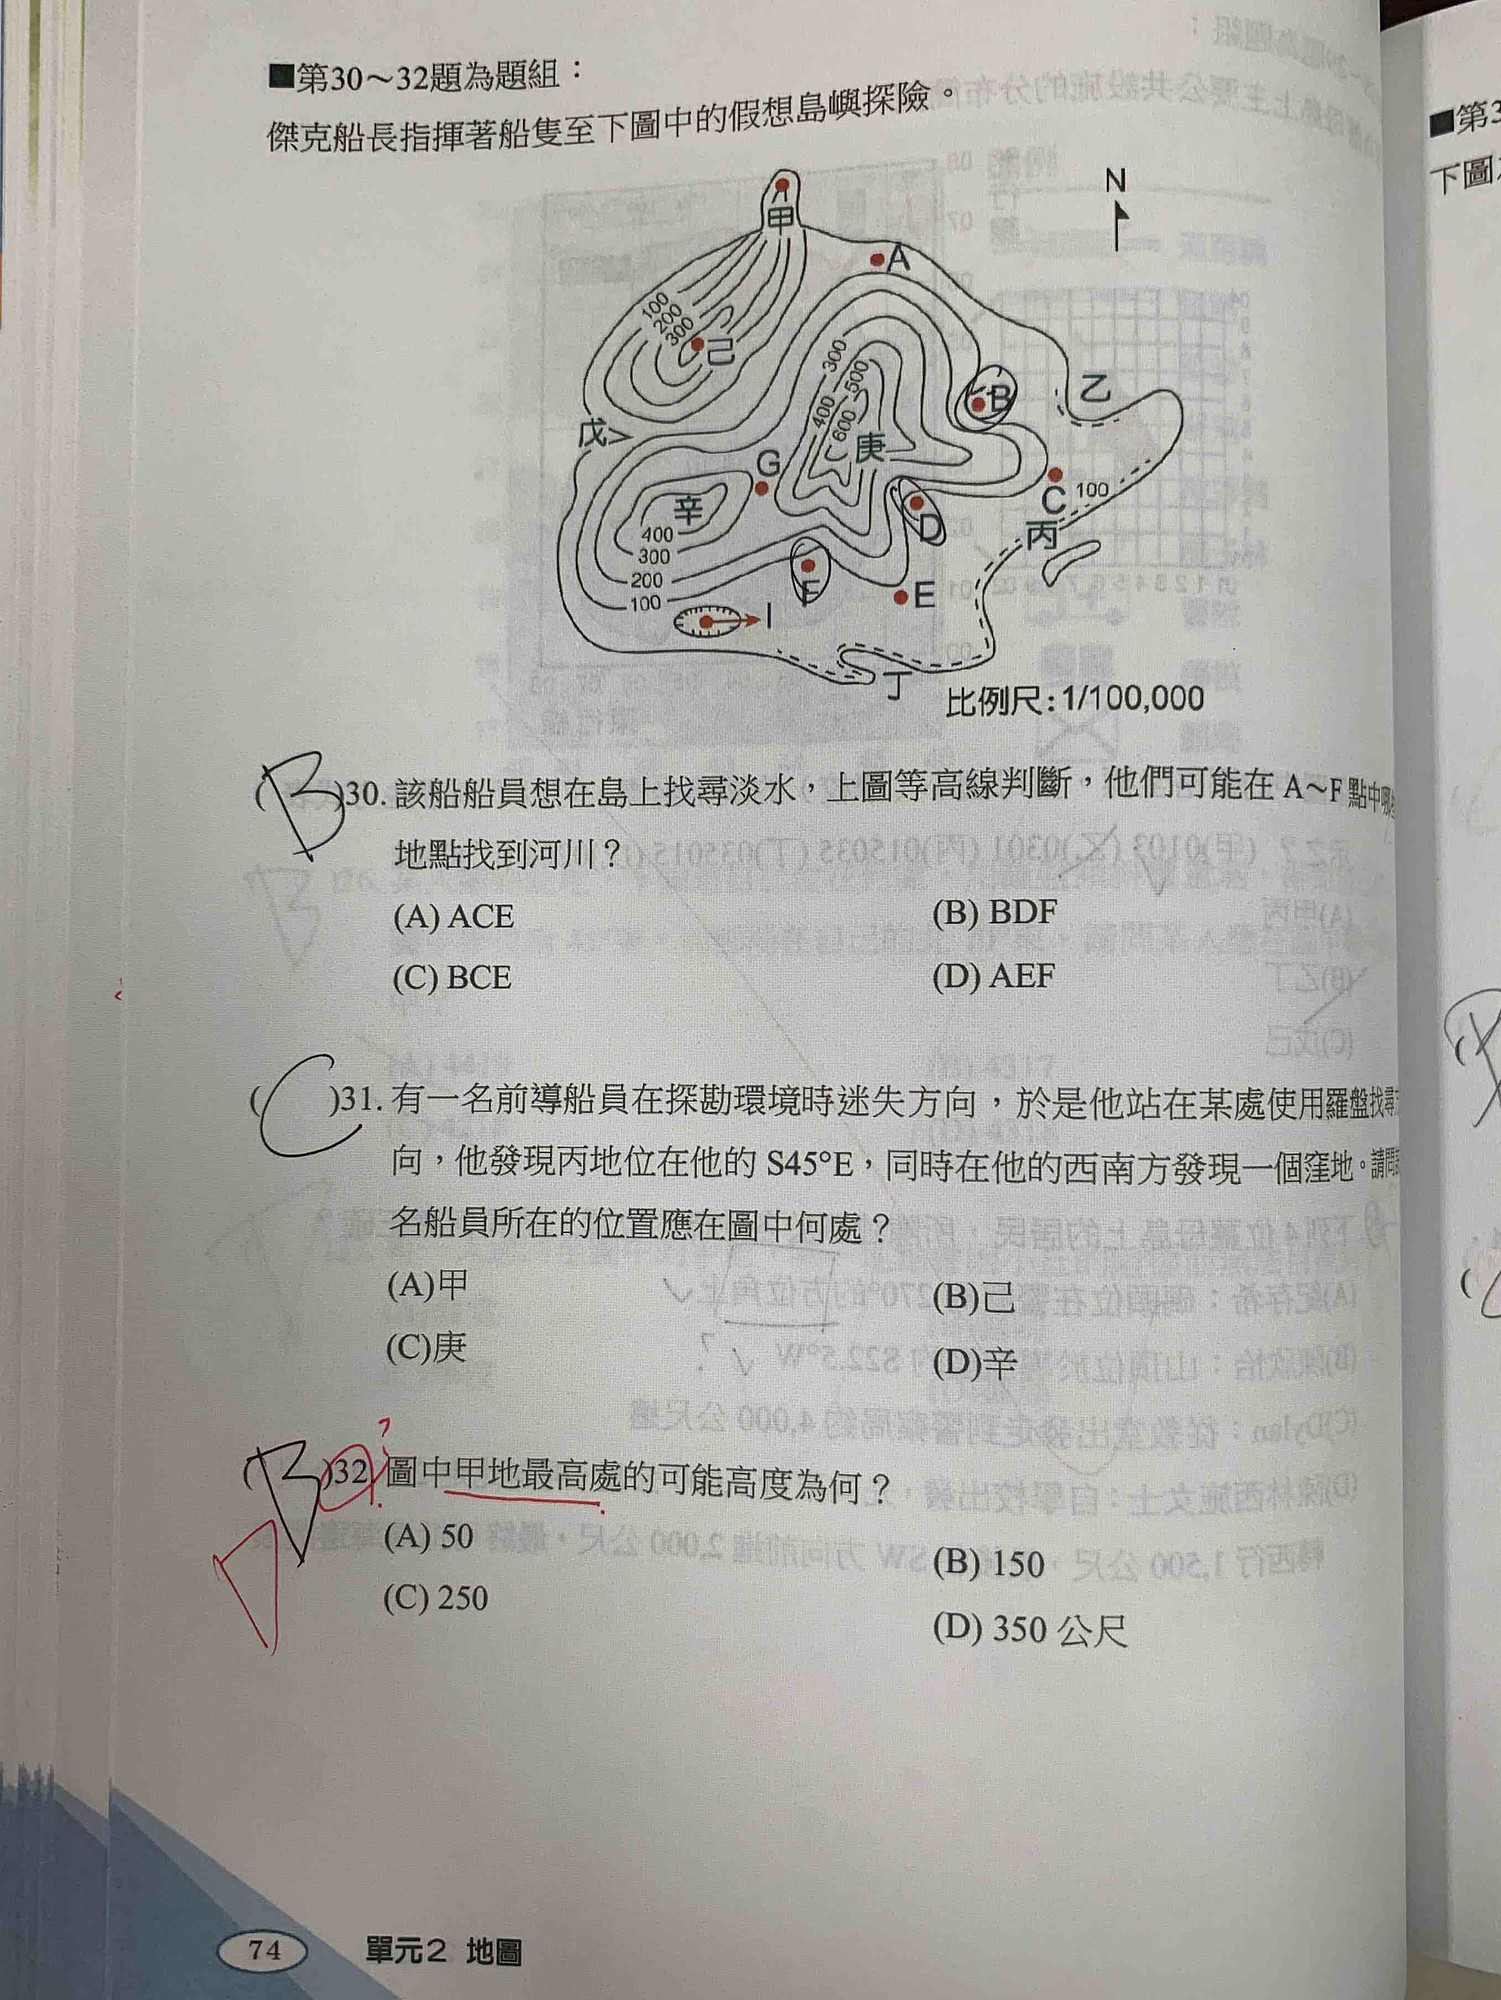 ■第30～32題為題組：
傑克船長指揮著船隻至下圖中的假想島嶼探險。
N
甲
A
100
200
300
己
300
500
400
600
B
乙
戊
庚
G
辛
C
100
D
丙
400
300
200
100
F
E
I
丁
比例尺：1/100,000
(B)30. 該船船員想在島上找尋淡水，上圖等高線判斷，他們可能在 A～F 點中哪
地點找到河川？
(A) ACE
(B) BDF
(C) BCE
(D) AEF
(C)31. 有一名前導船員在探勘環境時迷失方向，於是他站在某處使用羅盤找尋
向，他發現丙地位在他的 S45°E，同時在他的西南方發現一個窪地。請問
名船員所在的位置應在圖中何處？
(A)甲
(B)己
(C)庚
(D)辛
?
(B)32. 圖中甲地最高處的可能高度為何？
(A) 50
(B) 150
(C) 250
(D) 350 公尺
74
單元2 地圖
■第3
下圖